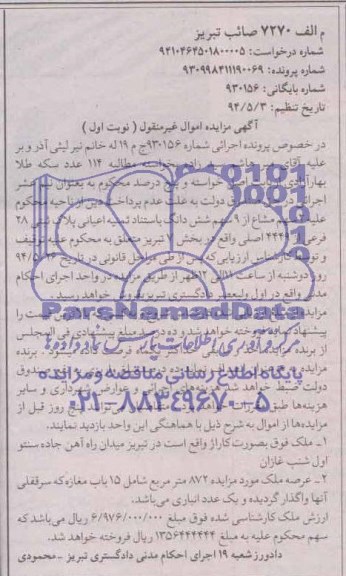 م الف ۷۲۷۰ صائب تبریز
شماره درخواست: ۹۴۱۰۴۶۴۵۰۱۸۰۰۰۰۵
شماره پرونده: ۹۳۰۹۹۸۴۱۱۱۹۰۰۶۹
شماره بایگانی: ۹۳۰۱۵۶
تاریخ تنظیم: ۹۴/۵/۳
آگهی مزایده اموال غیرمنقول ( نوبت اول )
در خصوص پرونده اجرائی شماره ۹۳۰۱۵۶ج م ۱۹ له خانم نیر لیثی آذر و بر
علیه آقای زاده بخواسته مطالبه ۱۱۴ عدد سکه طلا
بهارآزادی خواسته و پنج درصد محکوم به بعنوان نیم عشر
اجرائی در دولت به علت عدم پرداخت دین از ناحیه محکوم
علیه مشاع از ۹ سهم شش دانگ باستناد ثمنیه اعیانی پلاک ثبتی ۲۸
فرعی از ۴۴۴۹ اصلی واقع در بخش تبریز متعلق به محکوم علیه توقیف
و توسط کارشناس ارزیابی که پس از طی مراحل قانونی در تاریخ ۹۴/۵/۲۶
روز دوشنبه از ساعت ۱۱ الی ۱۲ ظهر از طریق مزایده در واحد اجرای احکام
مدنی واقع در اول ولیعصر دادگستری تبریز بفروش خواهد رسید.
مزایده از قیمت را
پیشنهاد نماید فروخته خواهد شد و ده درصد مبلغ پیشنهادی فی المجلس
از برنده مزایده حداکثر فرصت داده میشود. برنده
صندوق
دولت ضبط خواهد شد. هزینه‌های اجرائی و عوارض شهرداری و سایر
هزینه‌ها طبق مقررات خواهد پنج روز قبل از
مزایده‌ها از اموال به شرح ذیل با هماهنگی این واحد بازدید نمایند.
۱- ملک فوق بصورت کاراژ واقع است در تبریز میدان راه آهن جاده سنتو
اول شنب غازان
۲- عرصه ملک مورد مزایده ۸۷۲ متر مربع شامل ۱۵ باب مغازه که سرقفلی
آنها واگذار گردیده و یک عدد انباری می‌باشد.
ارزش ملک کارشناسی شده فوق مبلغ ۶/۹۷۶/۰۰۰/۰۰۰ ریال می‌باشد که
سهم محکوم علیه به مبلغ ۱۳۵۶۴۴۴۴۴۴ ریال فروخته خواهد شد.
دادورز شعبه ۱۹ اجرای احکام مدنی دادگستری تبریز - محمودی
ParsNamadData
مرکز فرآوری اطلاعات پارس نماد داده‌ها
پایگاه اطلاع رسانی مناقصه و مزایده
۰۲۱-۸۸۳۴۹۶۷۰-۵